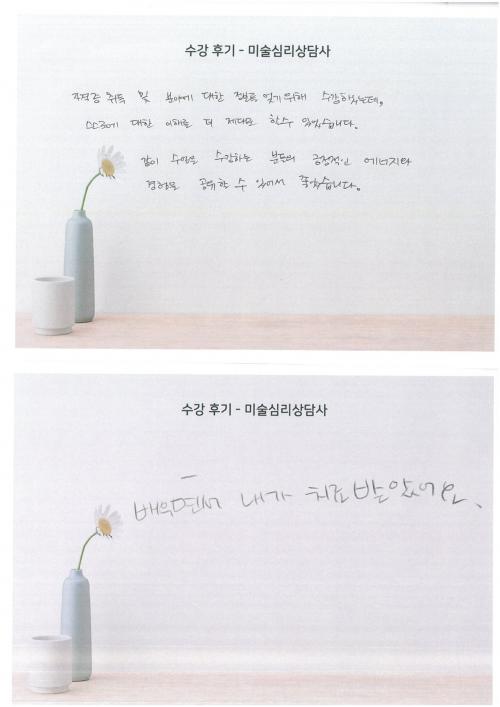 수강 후기 - 미술심리상담사
자격증 취득 및 분야에 대한 정보를 얻기위해 수강하였는데,
스스로에 대한 이해를 더 제대로 할수 있었습니다.
같이 수업을 수강하는 분들의 긍정적인 에너지와
경험을 공유할 수 있어서 좋았습니다.
수강 후기 - 미술심리상담사
배우면서 내가 치료받았어요.